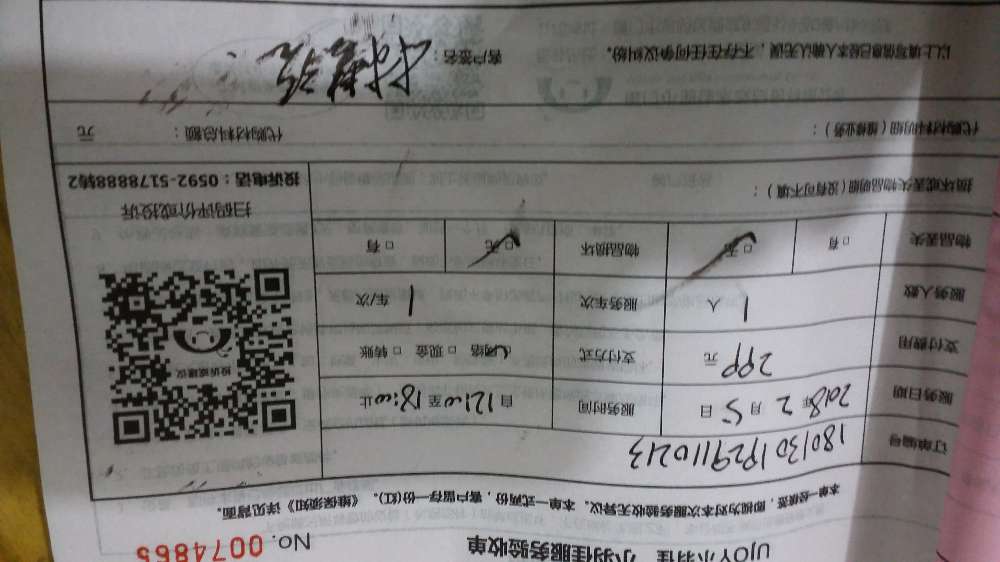 UJOY小羽佳 小羽佳服务验收单 No. 0074865
本单一经接签，即视为对本次服务验收无异议。本单一式两份，客户留存一份(红)。《维保须知》详见背面。
订单编号 1801301929110213
服务日期 2018年2月5日 服务时间 自12:00至18:00止
支付费用 299元 支付方式 网络 □ 现金 □ 转账
服务人数 1人 服务车次 1车/次
物品丢失 □ 有 □ 无 物品损坏 □ 无 □ 有
投诉或建议
扫码评价或投诉
投诉电话：0592-5178888转2
损坏或丢失物品明细(没有可不填)：
代购材料明细(维修业务)： 代购材料总额： 元
以上填写信息已经本人确认无误，不存在任何争议纠纷。 客户签名：